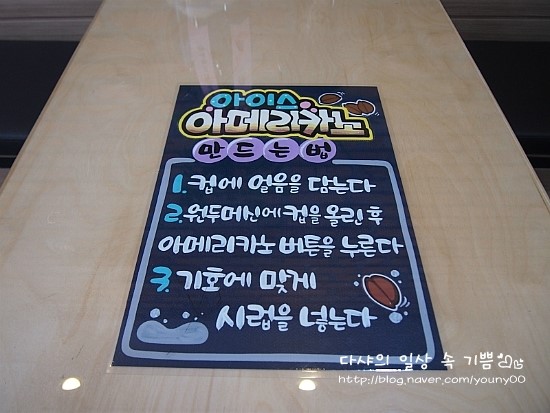 아이스
아메리카노
만드는법
1. 컵에 얼음을 담는다
2. 원두머신에 컵을 올린 후
아메리카노 버튼을 누른다
3. 기호에 맞게
시럽을 넣는다
다샤의 일상 속 기쁨
http://blog.naver.com/youny00